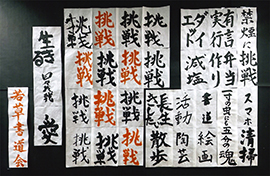 禁煙に挑戦
有言実行
弁当作り
ダイエット
減塩
スマホ
掃除
一寸の虫にも五分の魂
書道
絵画
活動
陶芸
長生き
散歩
挑戦
挑戦
挑戦
挑戦
挑戦
挑戦
挑戦
挑戦
挑戦
挑戦
挑戦
挑戦
挑戦
挑戦
愛
若草書道会